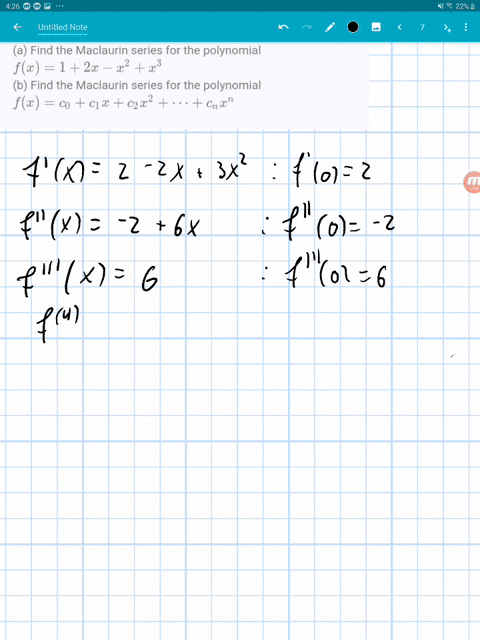 4:26 22%
Untitled Note 7
(a) Find the Maclaurin series for the polynomial
f(x) = 1 + 2x − x² + x³
(b) Find the Maclaurin series for the polynomial
f(x) = c₀ + c₁x + c₂x² + ⋯ + cₙxⁿ
f'(x) = 2 -2x + 3x² : f'(0) = 2
f''(x) = -2 + 6x : f''(0) = -2
f'''(x) = 6 : f'''(0) = 6
f⁽⁴⁾